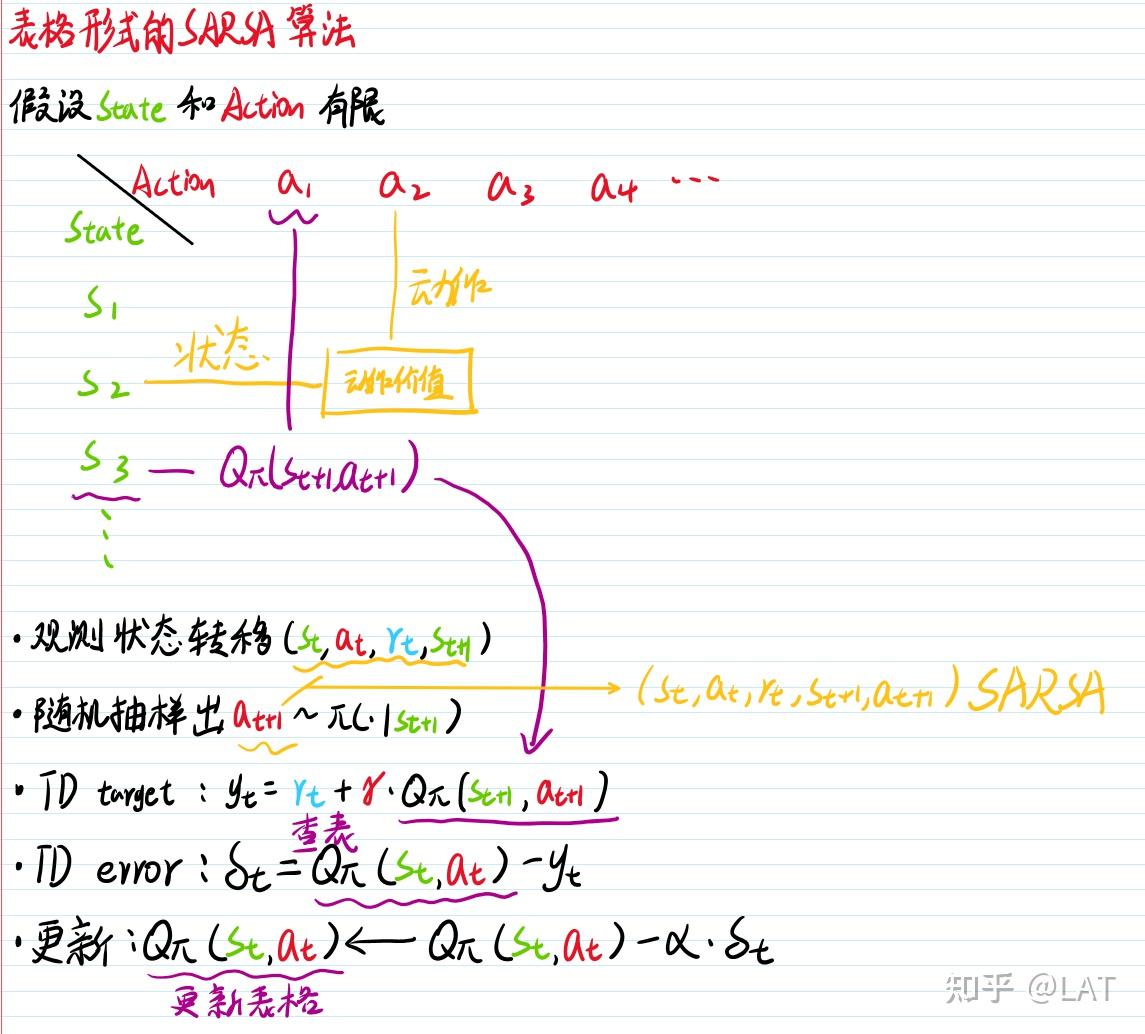 表格形式的SARSA算法
假设State和Action有限
Action a₁ a₂ a₃ a₄ ···
State
S₁
动作
状态
S₂
动作价值
S₃ — Qπ(St+1,at+1)
⋮
·观测状态转移(St,at,rt,St+1)
(St,at,rt,St+1,at+1)SARSA
·随机抽样出at+1~π(·|St+1)
·TD target:yt=rt+γ·Qπ(St+1,at+1)
查表
·TD error:δt=Qπ(St,at)-yt
·更新:Qπ(St,at)←Qπ(St,at)-α·δt
更新表格
知乎 @LAT